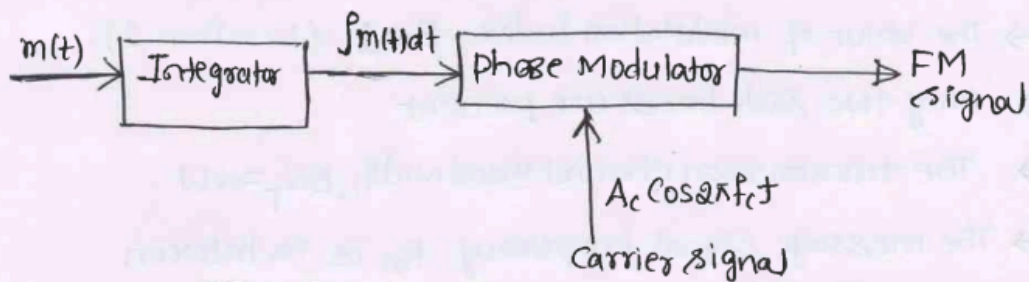 m(t)
Integrator
∫m(t)dt
Phase Modulator
FM
signal
Ac Cos2πfct
Carrier signal